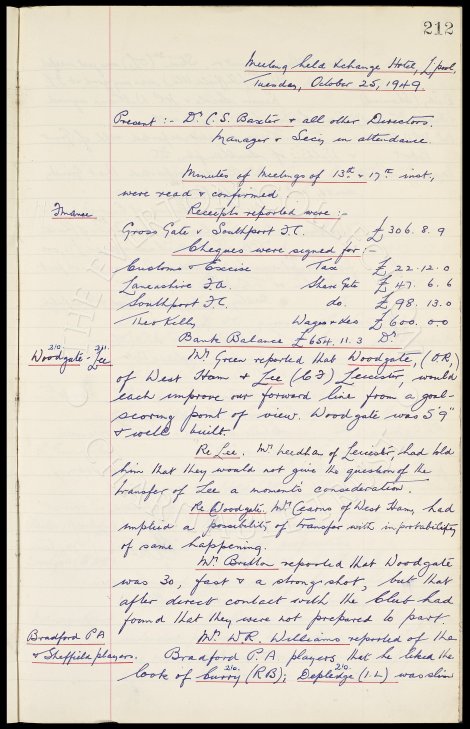 212
Meeting held Xchange Hotel, L'pool,
Tuesday, October 25, 1949.
Present :- Dr. C.S. Baxter & all other Directors.
Manager & Secy in attendance.
Minutes of Meetings of 13th & 17th inst.,
were read & confirmed
Finance
Receipts reported were :-
Gross Gate v Southport F.C. £306. 8. 9
Cheques were signed for :-
Customs & Excise Tax £ 22. 12. 0
Lancashire F.A. Share Gate £ 47. 6. 6
Southport F.C. do. £ 98. 13. 0
Theo Kelly Wages & Exs £ 600. 0. 0
Bank Balance £654. 11. 3 Dr
Woodgate - Lee
210 211
Mr. Green reported that Woodgate, (O.R.)
of West Ham & Lee (C.F) Leicester, would
each improve our forward line from a goal-
scoring point of view. Woodgate was 5'9"
& well built
Re Lee. Mr. Needham of Leicester, had told
him that they would not give the question of the
transfer of Lee a moments consideration.
Re Woodgate. Mr. Cearns of West Ham, had
implied a possibility of transfer with improbability
of same happening.
Mr. Britton reported that Woodgate
was 30, fast & a strong shot, but that
after direct contact with the Club had
found that they were not prepared to part.
Bradford P.A
& Sheffield players.
Mr. W.R. Williams reported of the
Bradford P.A. players, that he liked the
look of Curry (R.B); Depledge (I.L) was slim
210 210